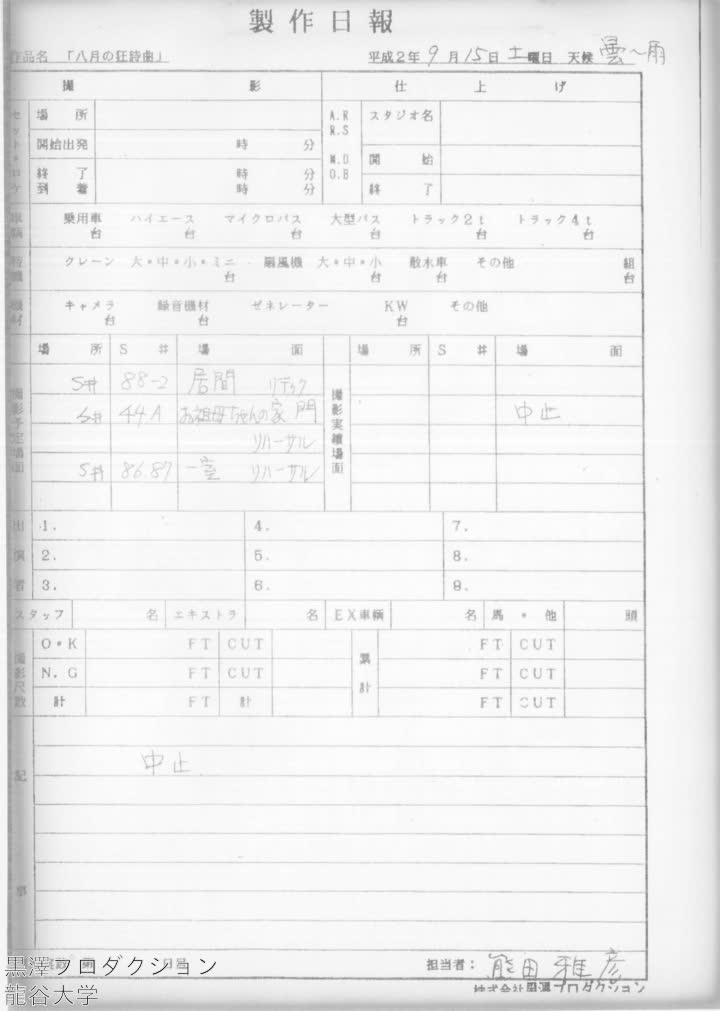 製作日報
作品名 「八月の狂詩曲」 平成2年9月15日土曜日 天候 曇〜雨
撮影 仕上げ
セット・ロケ 場所 A.R R.S スタジオ名
開始出発 時 分 M.D O.B 開始
終了 時 分
到着 時 分 終了
車輌 乗用車 台 ハイエース 台 マイクロバス 台 大型バス 台 トラック2t 台 トラック4t 台
クレーン 大・中・小・ミニ 台 扇風機 大・中・小 台 散水車 台 その他 組 台
機材 キャメラ 台 録音機材 台 ゼネレーター KW 台 その他
場所 S# 場面 場所 S# 場面
撮影予定場面 撮影実績場面
S# 88-2 居間 リテイク
S# 44A お祖母ちゃんの家 門 中止
リハーサル
S# 86.87 一室 リハーサル
出演者
1. 4. 7.
2. 5. 8.
3. 6. 9.
スタッフ 名 エキストラ 名 EX車輌 名 馬・他 頭
撮影尺数 O・K FT CUT 累計 FT CUT
N.G FT CUT FT CUT
計 FT 計 FT CUT
記事
中止
担当者: 熊田雅彦
株式会社黒澤プロダクション
黒澤プロダクション
龍谷大学